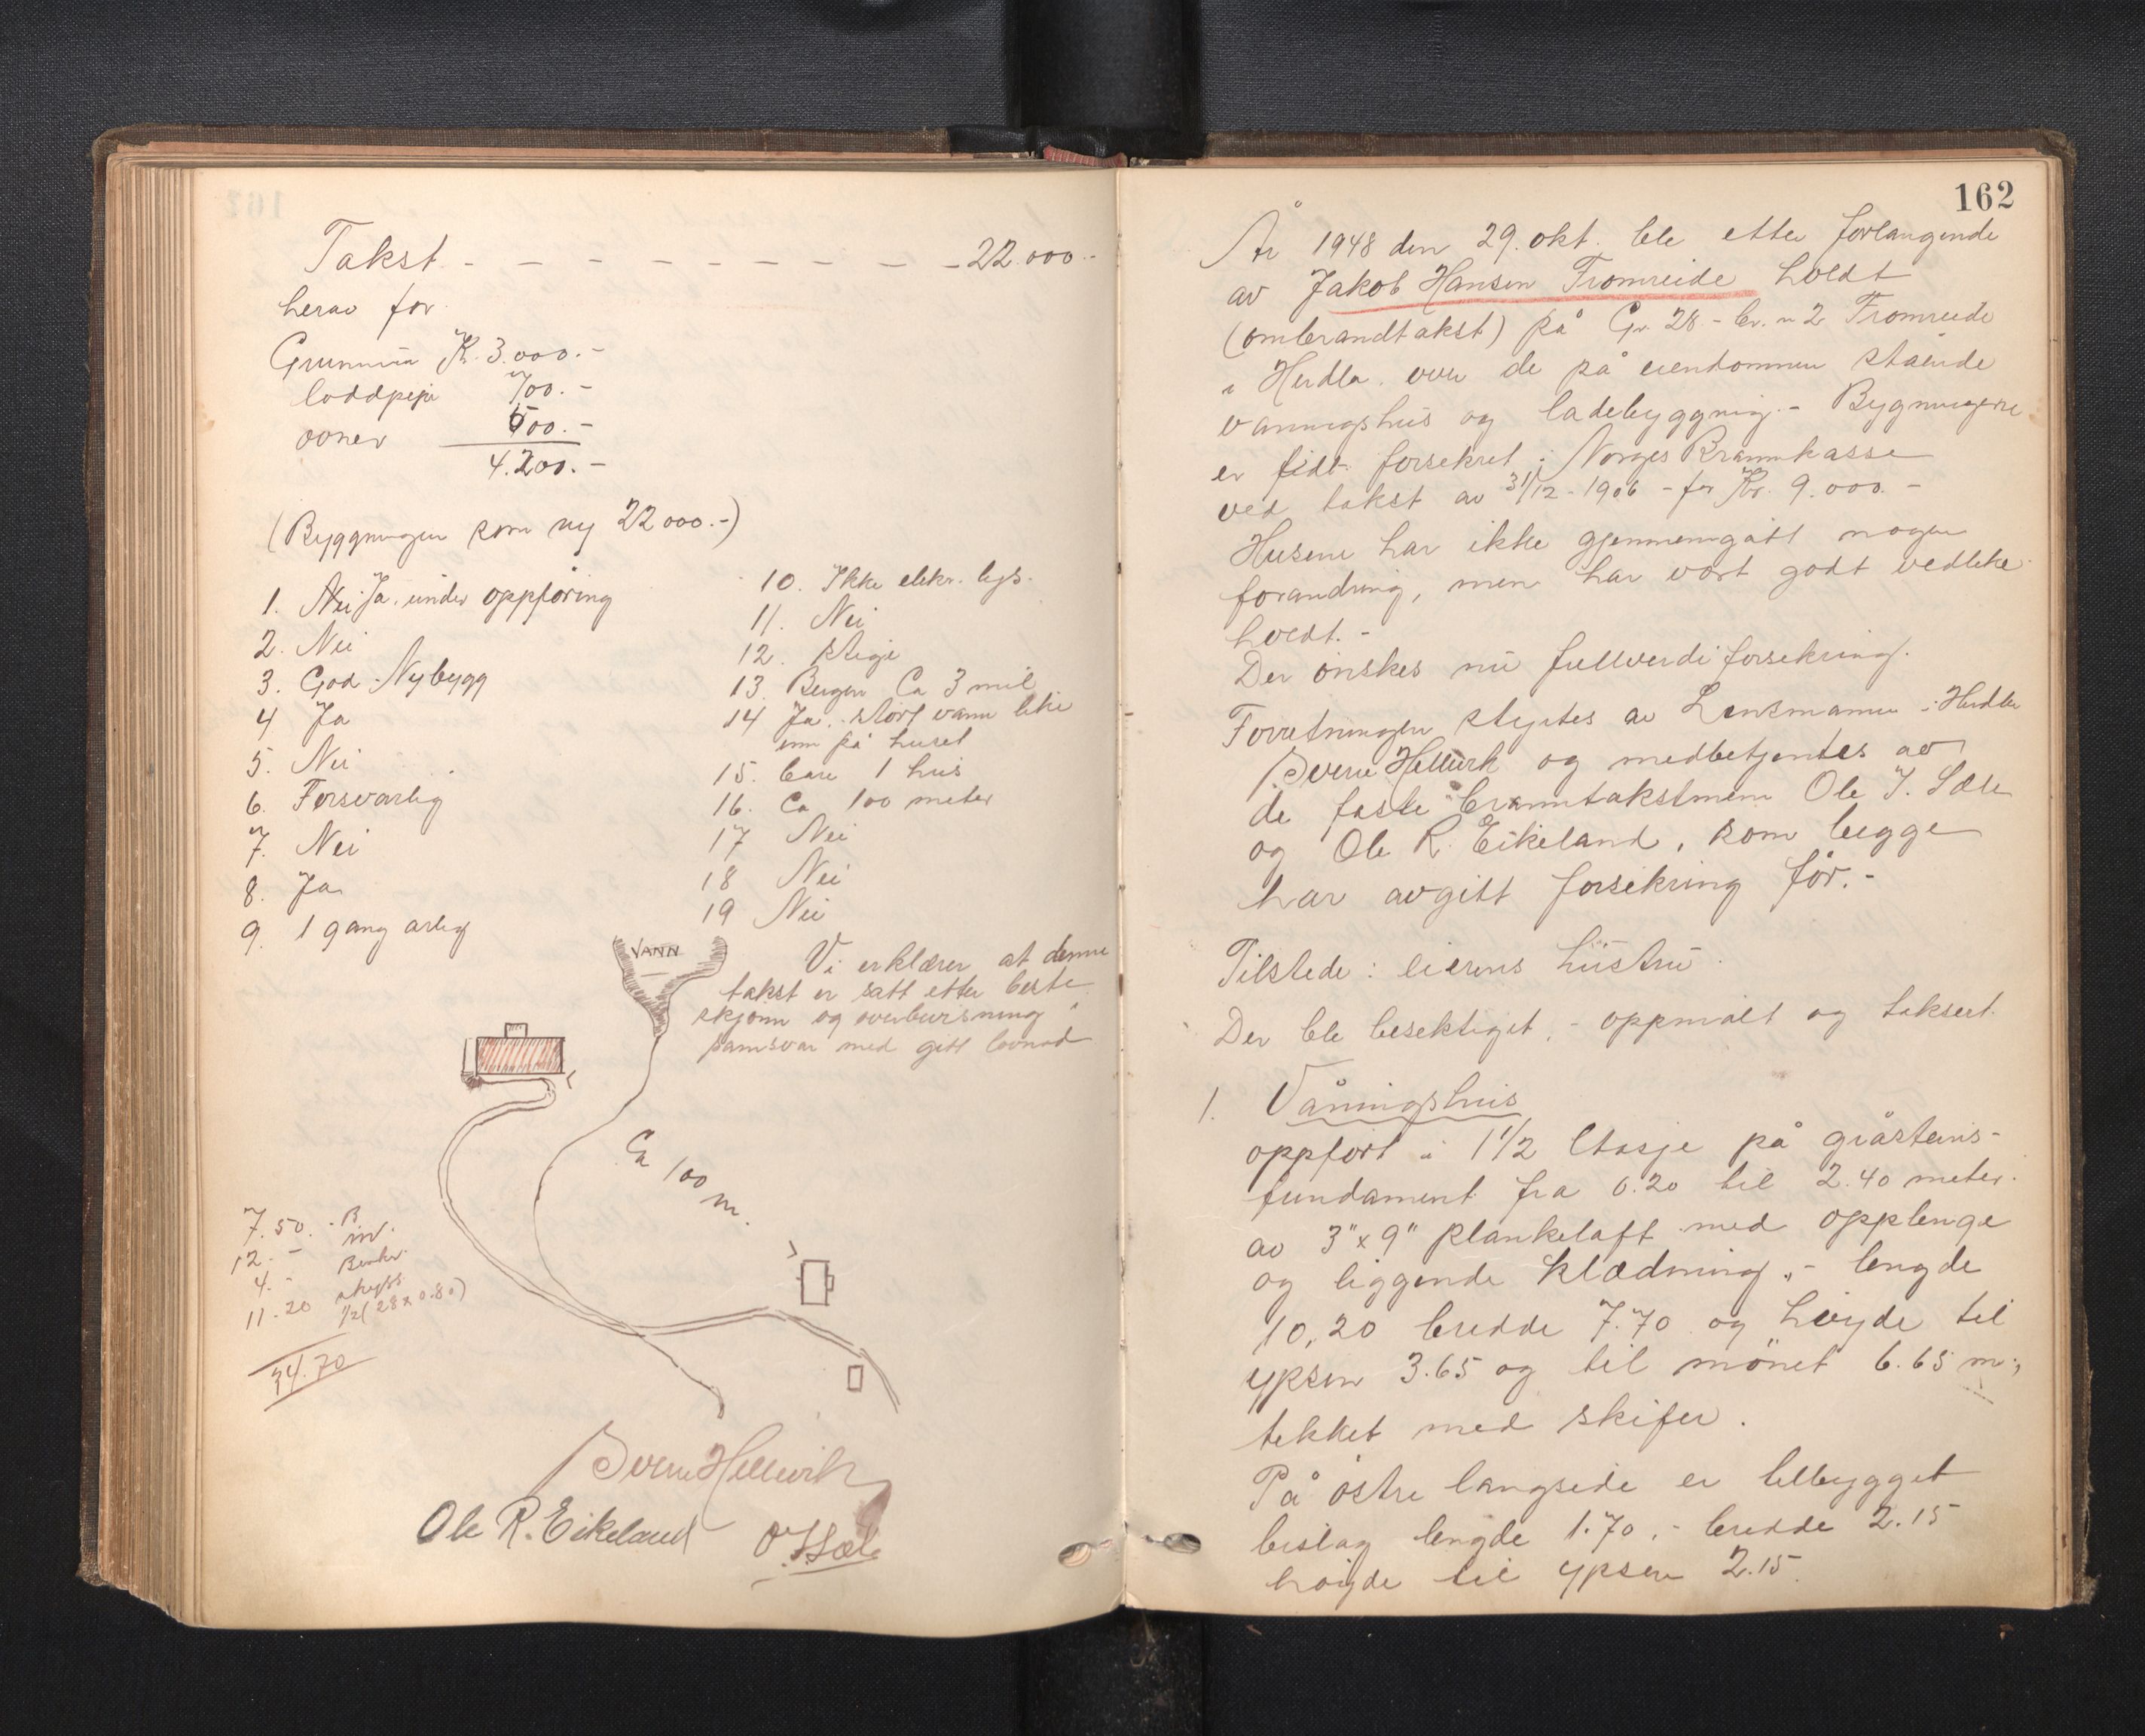 Takst - - - - - - - - - 22.000.-
herav for
Grunnmur Kr. 3.000.-
loddpipe 700.-
ovner 500.-
4.200.-
(Byggningen som ny 22000.-)
1. Nei Ja. under oppføring
2. Nei
3. God Nybygg
4 Ja
5. Nei
6. Forsvarlig
7. Nei
8. Ja
9. 1 gang årlig
10. Ikke elekr. lys.
11. Nei
12. Stige
13. Bergen Ca 3 mil
14 Ja. stort vann like
inn på huset
15. bare 1 hus
16. Ca 100 meter
17 Nei
18 Nei
19 Nei
VANN
Vi erklærer at denne
takst er satt etter beste
skjønn og overbevisning i
samsvar med gitt lovnad
Ca 100 m.
7.50. - B
12. -
4. -
11.20 skyss
1/2 (28 x 0.80)
34.70
Sverre Hellevik
Ole R. Eikeland O J Sæle
162
År 1948 den 29. okt. ble etter forlangende
av Jakob Hansen Fromreide holdt
(ombrandtakst) på Gr. 28 - br. n 2 Fromreide
i Herdla. over de på eiendommen stående
våningshus og ladebyggning.- Bygningene
er fidt. forsekret i Norges Brannkasse
ved takst av 31/12 - 1906 - for Kr. 9.000.-
Husene har ikke gjennemgått nogen
forandring, men har vært godt vedlike
holdt.-
Der ønskes nu fullverdi forsekring.
Forretningen styrtes av Lensmannen i Herdla
Sverre Hellevik og medbetjentes av
de faste branntakstmenn Ole J. Sæle
og Ole R. Eikeland, som begge
har avgitt forsikring før.-
Tilstede: eierens hustru.
Der ble besektiget, - oppmålt og taksert.
1. Våningshus
oppført i 1 1/2 Etasje på gråsteins-
fundament fra 0.20 til 2.40 meter.
av 3" x 9" plankelaft med opplenge
og liggende klædning, - lengde
10,20 bredde 7.70 og høyde til
ypsen 3.65 og til mønet 6.65 m.,
tekket med skifer.
På østre langside er tilbygget
bislag lengde 1.70, - bredde 2.15
høyde til ypsen 2.15.